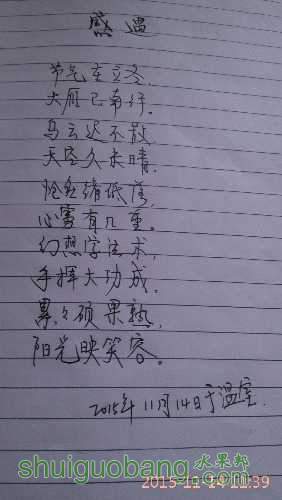 感遇
节气在立冬
大雁已南行
乌云迟不散
天空久未晴
情绪低落
心雾有几重
幻想学法术，
手挥大功成。
累々硕果熟，
阳光映笑容。
2015年11月14日于温室.
水果邦
shuiguobang.com
2015-11-14 11:39